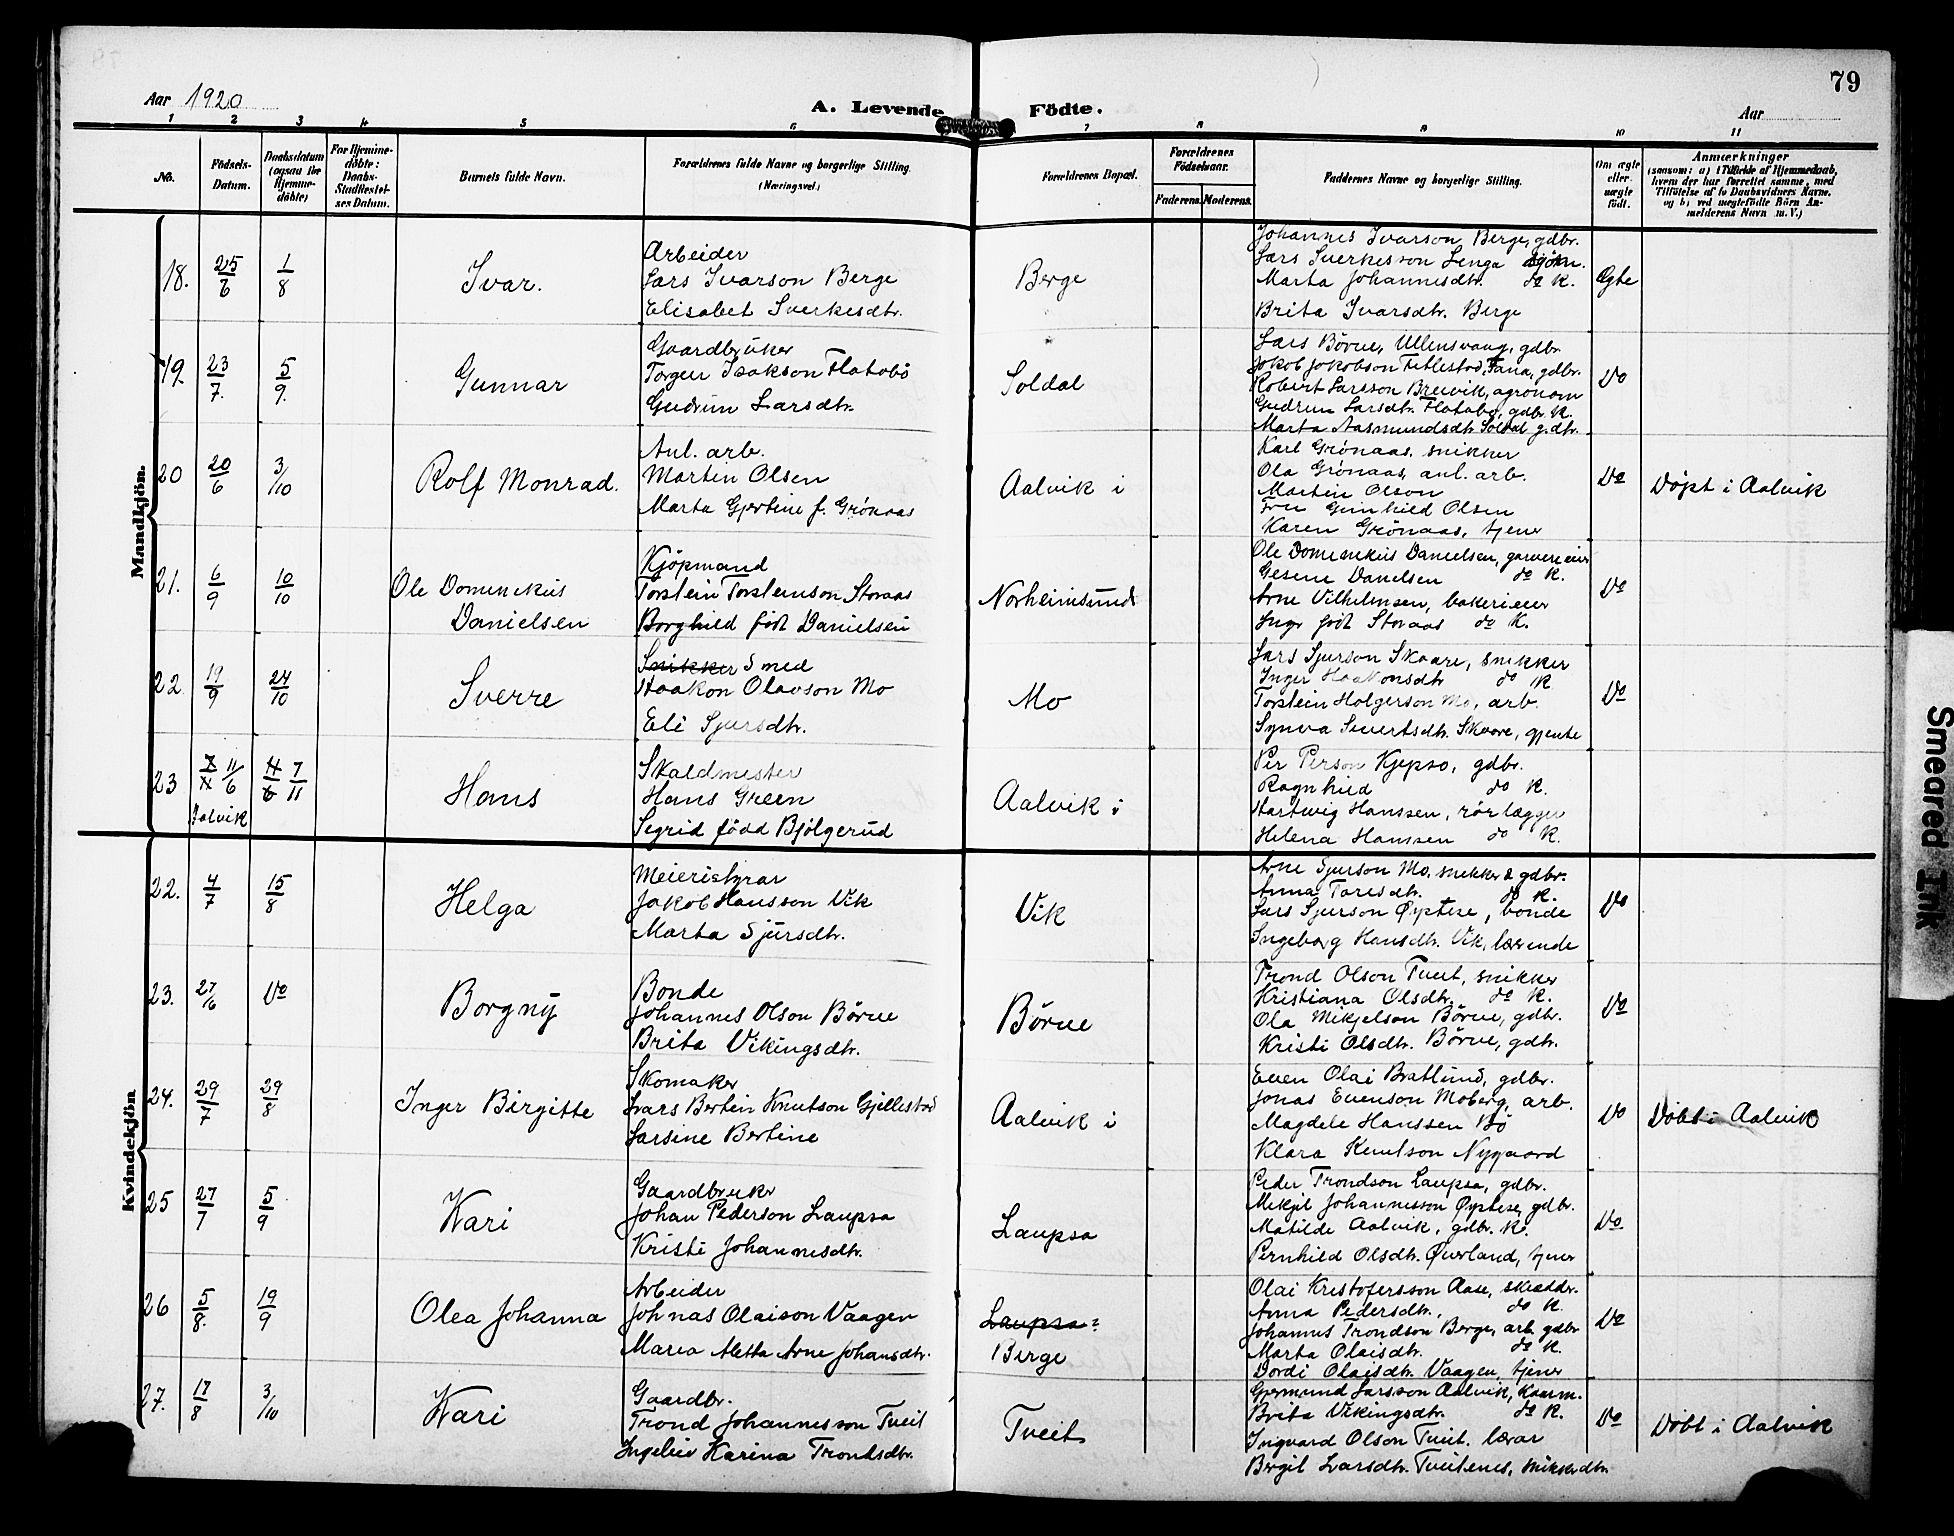 79
Aar 1920
A. Levende Födte.
Aar
1 2 3 4 5 6 7 8 9 10 11
No.
Födsels-Datum.
Daabsdatum (ogsaa for Hjemmedöbte)
For Hjemmedöbte: Daabs-Stadfæstelses Datum.
Barnets fulde Navn.
Forældrenes fulde Navne og borgerlige Stilling. (Næringsvei.)
Forældrenes Bopæl.
Forældrenes Födselsaar.
Faderens. Moderens.
Faddernes Navne og borgerlige Stilling.
Om ægte eller uægte födt.
Anmærkninger
(saasom: a) i Tilfælde af Hjemmedaab, hvem der har forrettet samme, med Tilföielse af to Daabsvidners Navne. og b) ved uægtefödte Börn Anmelderens Navn m. V.)
Mandkjön.
18. 25/6 1/8 Ivar.
Arbeider
Lars Ivarson Berge
Elisabet Sverkesdtr.
Berge
Johannes Ivarson Berge, gdbr.
Lars Sverkesson Lenga
Marta Johannesdtr. do K.
Brita Ivarsdtr. Berge
Ægte
19. 23/7. 5/9. Gunnar
Gaardbruker
Torgeir Isakson Flatabö
Gudrun Larsdtr.
Soldal
Lars Börve, Ullensvang, gdbr.
Jakob Jakobson Titlestad, Fana, gdbr.
Robert Larsson Breivik, agronom
Gudrun Larsdtr. Flatabø, gdbr. K.
Marta Aasmundsdtr. Soldal g.dtr.
Do
20 20/6 3/10 Rolf Monrad.
Anl. arb.
Martin Olsen
Marta Gjertine f. Grönaas
Aalvik i
Karl Grönaas, snikker
Ola Grönaas, anl. arb.
Martin Olson
Fru Gunhild Olsen
Karen Grönaas, tjener
Do
Döpt i Aalvik
21. 6/9 10/10 Ole Dominekus
Danielsen
Kjöpmand
Torstein Torsteinson Storaas
Borghild födt Danielsen
Norheimsund
Ole Dominekus Danielsen, garverieier
Gesine Danielsen do K.
Arne Vilhelmsen, bakerieier
Inga födt Storaas do K.
Do
22 19/9 24/10 Sverre
Snikker Smed
Haakon Olavson Mo
Eli Sjursdtr.
Mo
Lars Sjurson Skaare, snikker
Inger Haakonsdtr do K
Torstein Holgerson Mo, arb.
Synva Sivertsdtr. Skaare, gjente
Do
23 11/6 7/11 Hans
Aalvik
Skaldmester
Hans Green
Sigrid född Bjölgerud
Aalvik i
Per Person Kjepso, gdbr.
Ragnhild do K.
Hartwig Hanssen, rörlægger
Helena Hanssen do K.
Kvindekjön
22. 4/7 15/8 Helga
Meieristyrar
Jakob Hansson Vik
Marta Sjursdtr.
Vik
Arne Sjurson Mo, snikker & gdbr.
Anna Toresdtr. do K.
Lars Sjurson Øystese, bonde
Ingeborg Hansdtr. Vik, lærende
Do
23. 27/6 Do Borgny
Bonde
Johannes Olson Börve
Brita Vikingsdtr.
Börve
Trond Olson Tveit, snikker
Kristiana Olsdtr. do K.
Ola Mikjelson Börve, gdbr.
Kristi Olsdtr. Börve, gdtr.
Do
24. 29/7 29/8 Inger Birgitte
Skomaker
Lars Bertin Knutson Gjellestad
Larsine Bertine
Aalvik i
Even Olai Bratlund, gdbr.
Jonas Evenson Moberg, arb.
Magdele Hanssen Bö
Klara Knutson Nygaard
Do
Döbt i Aalvik
25 27/7 5/9 Kari
Gaardbruker
Johan Pederson Laupsa
Kristi Johannesdtr.
Laupsa
Peder Trondson Laupsa, gdbr.
Mikjel Johannesson Öystese, gdbr.
Matilde Aalvik, gdbr. K.
Pernhild Olsdtr. Øverland, tjener
Do
26 5/8. 19/9 Olea Johanna
Arbeider
Johnas Olaison Vaagen
Maria Aletta Arne Johansdtr.
Laupsa
Berge
Olai Kristofersson Aase, skrædder.
Anna Pedersdtr. do K.
Johannes Trondson Berge, arb. gdbr
Marta Olaisdtr. do K.
Dordi Olaisdtr. Vaagen, tjener
Do
27. 17/8 3/10 Kari
Gaardbr.
Trond Johannesson Tveit
Ingeleiv Karina Trondsdtr.
Tveit
Gjermund Larsson Aalvik, kaarm.
Brita Vikingsdtr. do K.
Ingvard Olson Tveit. lærar
Bergit Larsdtr. Tveitenes, snikkerdtr.
Do
Döbt i Aalvik
Smeared Ink